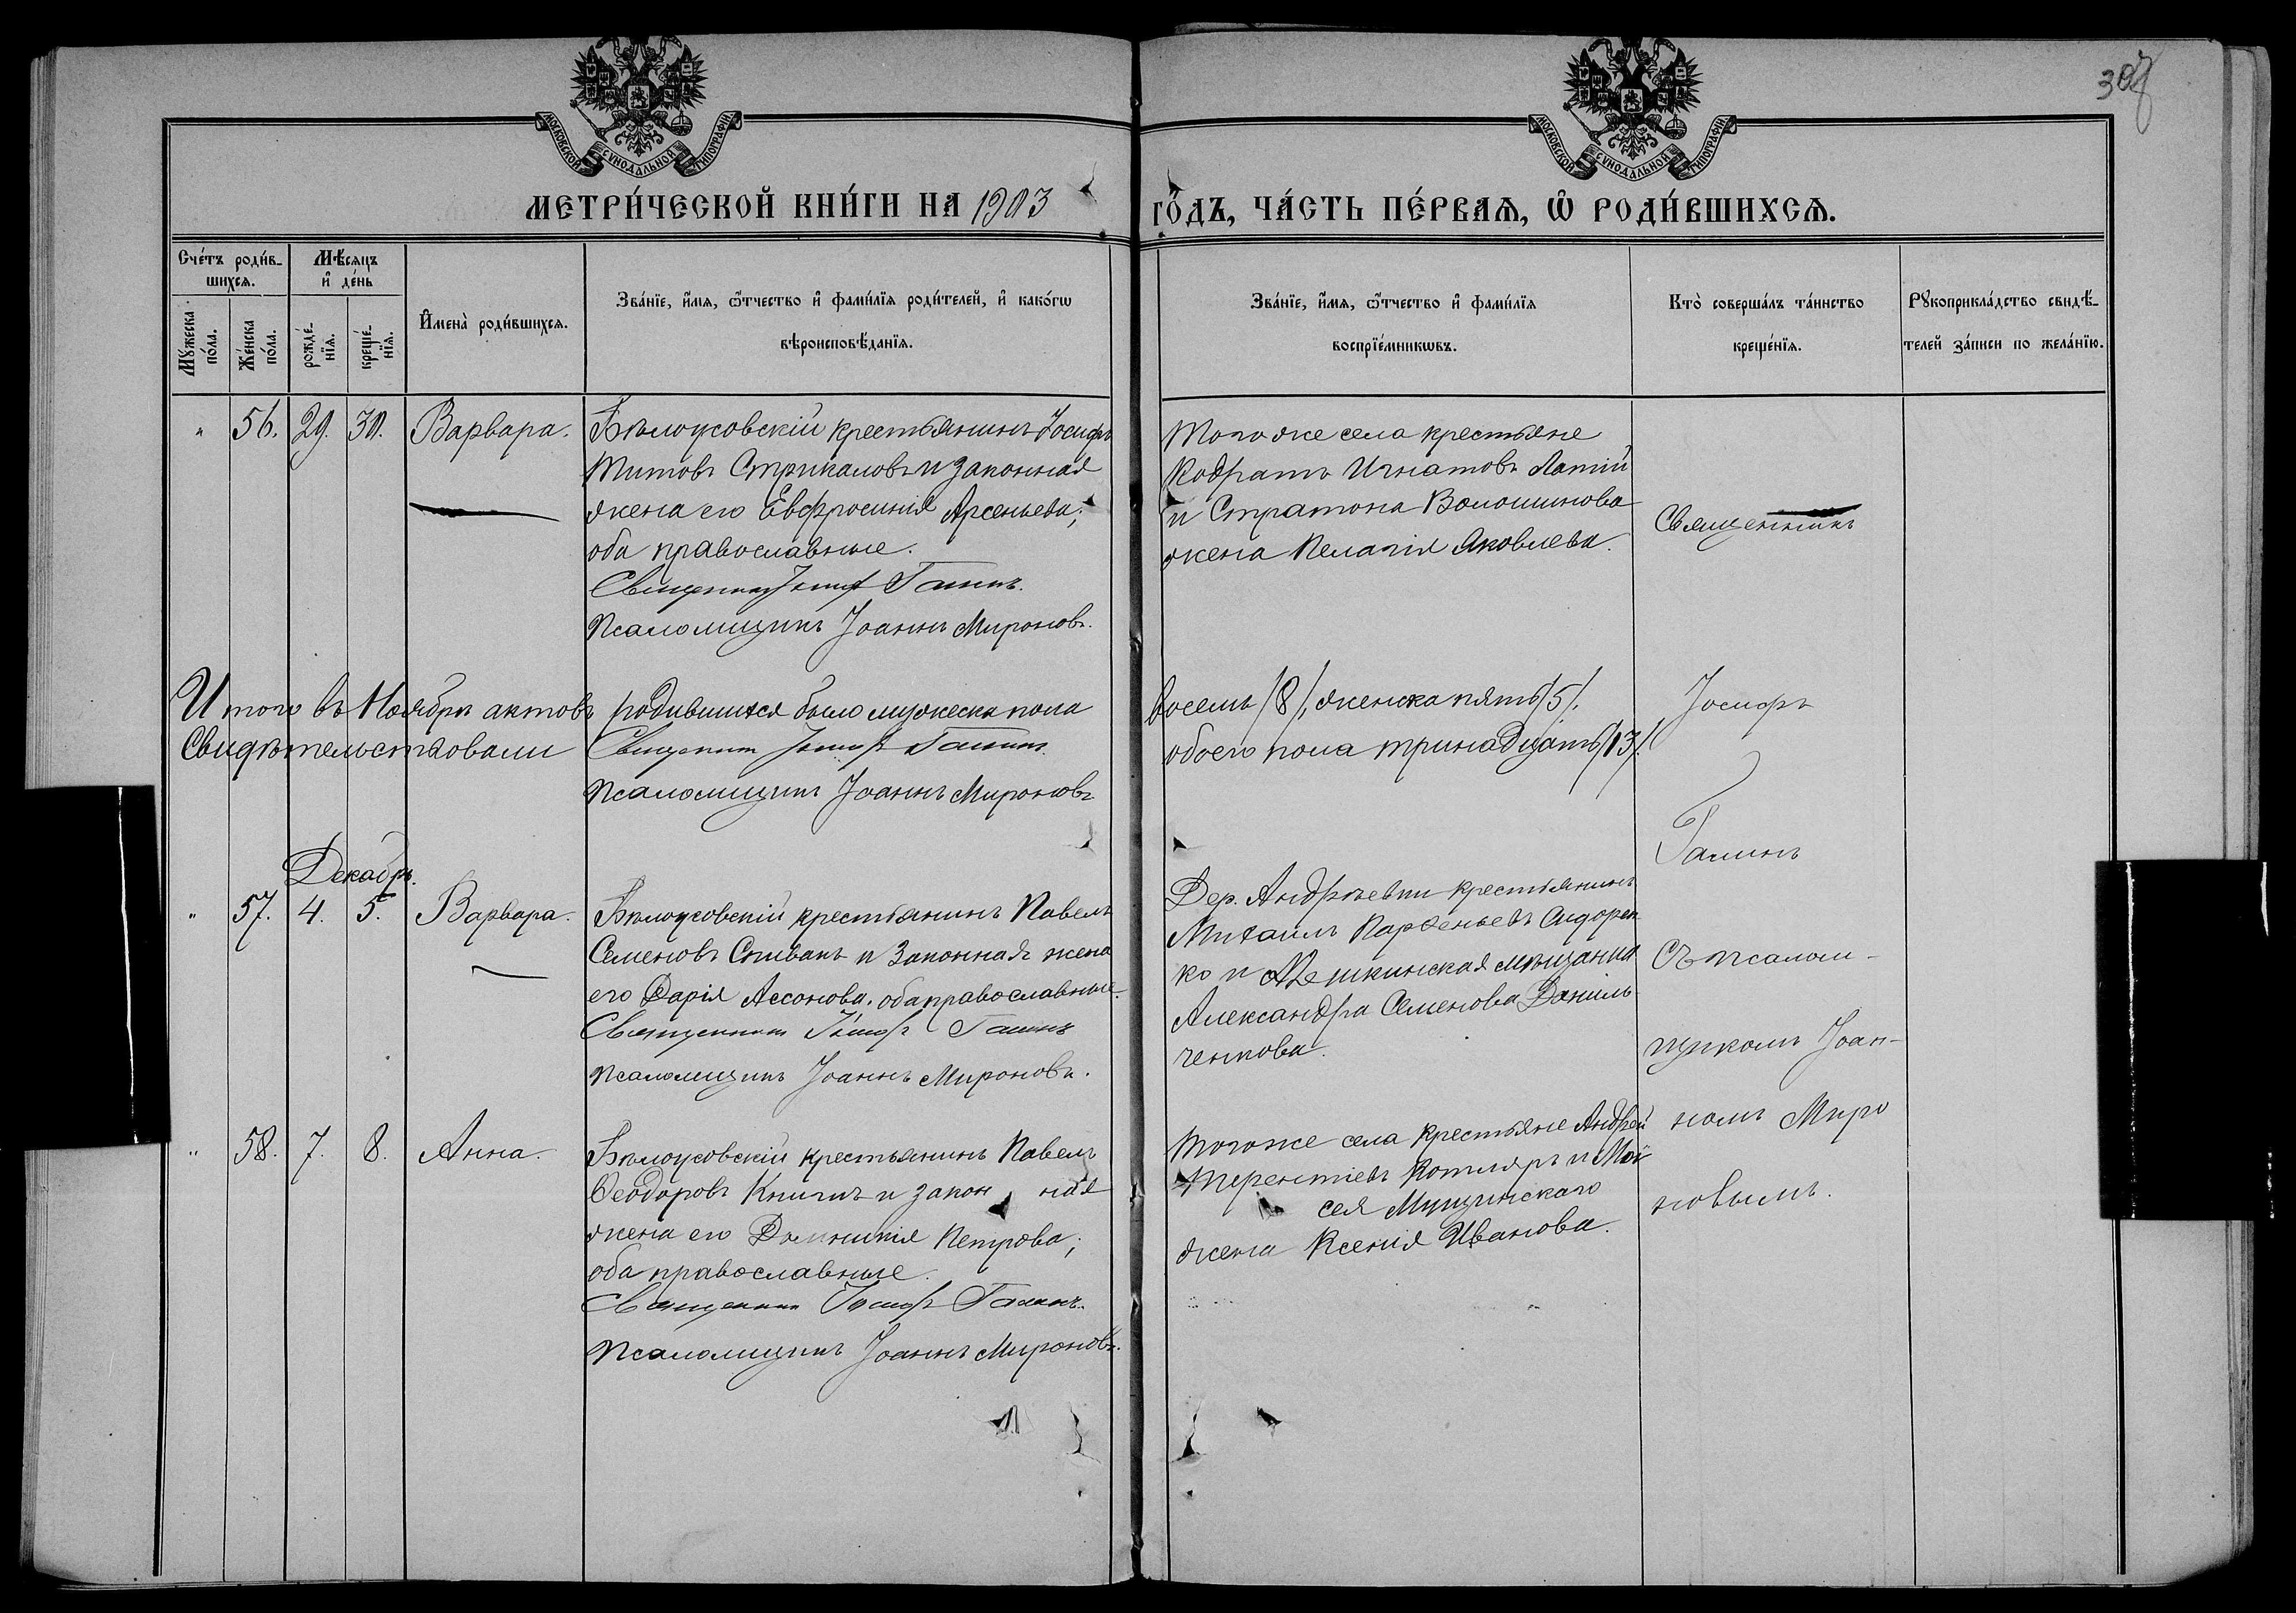 307
МОСКОВСКОЙ СѴНОДАЛЬНОЙ ТИПОГРАФІИ
МОСКОВСКОЙ СѴНОДАЛЬНОЙ ТИПОГРАФІИ
МЕТРИ́ЧЕСКОЙ КНИ́ГИ НА 1903
ГО́ДЪ, ЧА́СТЬ ПЕ́РВАѦ, Ѡ҆ РОДИ́ВШИХСѦ.
Сче́тъ роди́в-
шихсѧ.
Мꙋжеска по́ла.
Же́нска по́ла.
Мѣ́сѧцъ
и҆ де́нь
рожде́-нїѧ.
креще́-нїѧ.
И҆мена̀ роди́вшихсѧ.
Зва́нїе, и҆́мѧ, ѻ҆́тчество и҆ фами́лїѧ роди́телей, и҆ како́гѡ
вѣроисповѣ́данїѧ.
Зва́нїе, и҆́мѧ, ѻ҆́тчество и҆ фами́лїѧ
воспрїе́мникѡвъ.
Кто̀ соверша́лъ та́инство
креще́нїѧ.
Рꙋкоприкла́дство свидѣ́-
телей за́писи по жела́нїю.
" 56. 29. 30. Варвара.
Бѣлоусовскій крестьянинъ Іосифъ
Титовъ Стрикаловъ и законная
жена его Евфросинія Арсеньева;
оба православные.
Священникъ Іосифъ Галинъ.
Псаломщикъ Іоаннъ Мироновъ.
Того же села крестьяне
Кодратъ Игнатовъ Латій
и Стратона Волошинова
жена Пелагія Яковлева.
Священникъ
Итого въ Ноябрѣ актовъ родившихся было мужеска пола
восемь /8/, женска пять /5/,
Свидѣтельствовали Священникъ Іосифъ Галинъ
обоего пола тринадцать /13/.
Псаломщикъ Іоаннъ Мироновъ
Іосифъ
Галинъ
Декабрь.
" 57. 4. 5. Варвара.
Бѣлоусовскій крестьянинъ Павелъ
Семеновъ Спивакъ и законная жена
его Дарія Ассонова, оба православные.
Священникъ Іосифъ Галинъ
Псаломщикъ Іоаннъ Мироновъ.
Дер. Андреевки крестьянинъ
Михаилъ Парфеньевъ Сидорен-
ко и мѣщанка
Александра Семенова Даниль-
ченкова.
съ псалом-
щикомъ Іоан-
номъ Миро
новымъ.
" 58. 7. 8. Анна.
Бѣлоусовскій крестьянинъ Павелъ
Ѳеодоровъ Книгинъ и закон ная
жена его Домникія Петрова;
оба православные.
Священникъ Іосифъ Галинъ.
Псаломщикъ Іоаннъ Мироновъ.
Того же села крестьяне Андрей
Терентіевъ Котляръ и Мой
сея Мущинскаго
жена Ксенія Иванова.